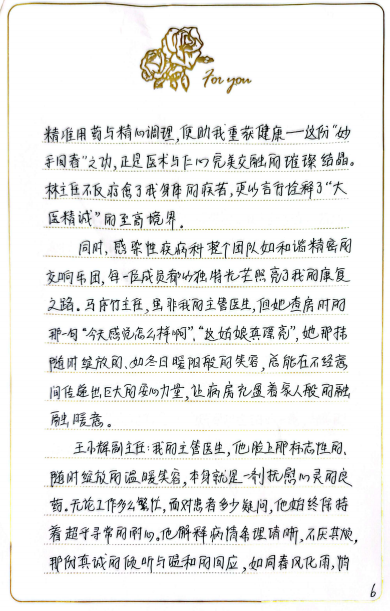 For you
精准用药与精心调理,使助我重获健康——这份“妙
手回春”之功,正是医术与仁心完美交融的璀璨结晶。
林主任不仅治愈了我身体的疾苦,更以言行诠释了“大
医精诚”的至高境界。
同时,感染性疾病科整个团队如和谐精密的
交响乐团,每一位成员都以独特光芒照亮了我的康复
之路。马序竹主任,虽非我的主管医生,但她查房时的
那一句“今天感觉怎么样啊”、“这姑娘真漂亮”,她那抹
随时绽放的、如冬日暖阳般的笑容,总能在不经意
间传递出巨大的安心力量,让病房充盈着家人般的融
融暖意。
王小辉副主任:我的主管医生,他脸上那标志性的、
随时绽放的温暖笑容,本身就是一剂抚慰心灵的良
药。无论工作多么繁忙,面对患者多少疑问,他始终保持
着超乎寻常的耐心。他解释病情条理清晰,不厌其烦,
那份真诚的倾听与温和的回应,如同春风化雨,悄
6